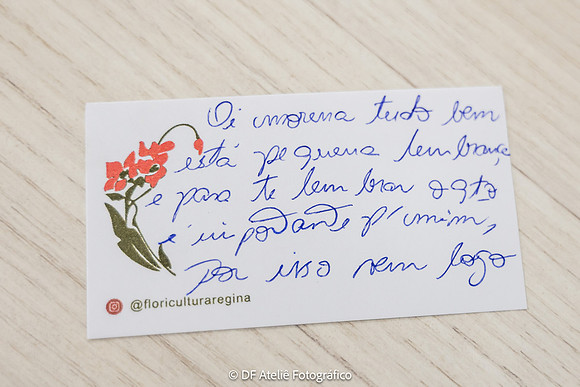 Oi morena tudo bem
está pequena lembrança
e para te lembrar o qto
é importante p/ mim,
por isso vem logo
@floriculturaregina
© DF Ateliê Fotográfico